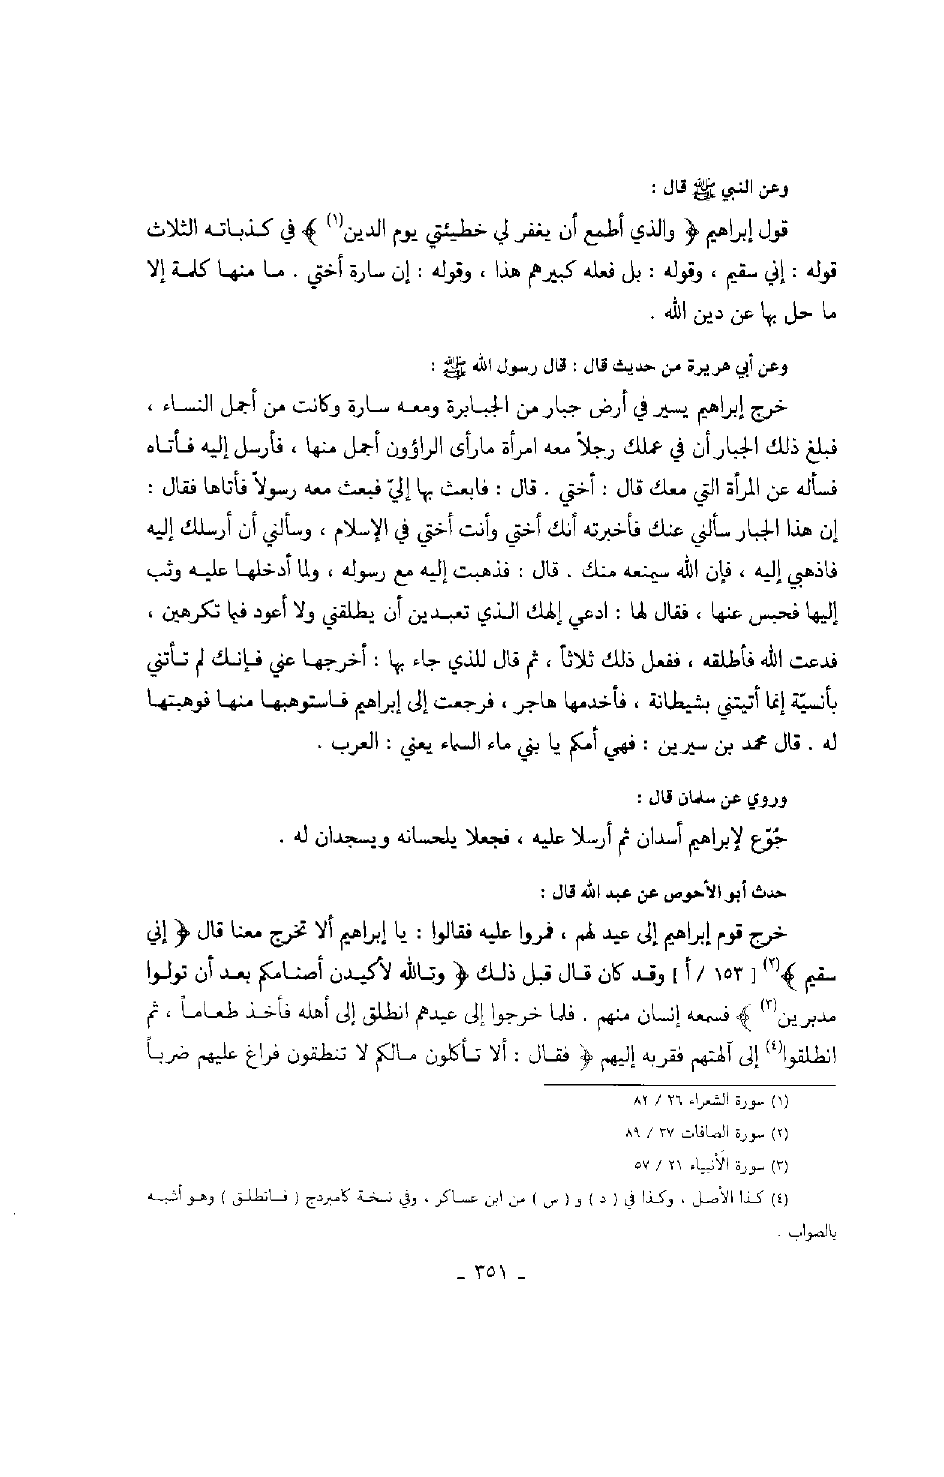 وعن النبي ﷺ قال :
قول إبراهيم ﴿ والذي أطمع أن يغفر لي خطيئتي يوم الدين(١) ﴾ في كذباته الثلاث
قوله : إني سقيم ، وقوله : بل فعله كبيرهم هذا ، وقوله : إن سارة أختي . ما منها كلمة إلا
ما حل بها عن دين الله .
وعن أبي هريرة من حديث قال : قال رسول الله ﷺ :
خرج إبراهيم يسير في أرض جبار من الجبابرة ومعه سارة وكانت من أجمل النساء ،
فبلغ ذلك الجبار أن في عملك رجلاً معه امرأة مارأى الراؤون أجمل منها ، فأرسل إليه فأتاه
فسأله عن المرأة التي معك قال : أختي . قال : فابعث بها إليّ فبعث معه رسولاً فأتاها فقال :
إن هذا الجبار سألني عنك فأخبرته أنك أختي وأنت أختي في الإسلام ، وسألني أن أرسلك إليه
فاذهبي إليه ، فإن الله سيمنعه منك . قال : فذهبت إليه مع رسوله ، ولما أدخلها عليه وثب
إليها فحبس عنها ، فقال لها : ادعي إلهك الذي تعبدين أن يطلقني ولا أعود فيما تكرهين ،
فدعت الله فأطلقه ، ففعل ذلك ثلاثاً ، ثم قال للذي جاء بها : أخرجها عني فإنك لم تأتني
بأنسيّة إنما أتيتني بشيطانة ، فأخدمها هاجر ، فرجعت إلى إبراهيم فاستوهبها منها فوهبتها
له . قال محمد بن سيرين : فهي أمكم يا بني ماء السماء يعني : العرب .
وروي عن سلمان قال :
جُوّع لإبراهيم أسدان ثم أرسلا عليه ، فجعلا يلحسانه ويسجدان له .
حدث أبو الأحوص عن عبد الله قال :
خرج قوم إبراهيم إلى عيد لهم ، فمروا عليه فقالوا : يا إبراهيم ألا تخرج معنا قال ﴿ إني
سقيم ﴾(٢) [ ١٥٣ / أ ] وقد كان قال قبل ذلك ﴿ وتالله لأكيدن أصنامكم بعد أن تولوا
مدبرين(٣) ﴾ فسمعه إنسان منهم . فلما خرجوا إلى عيدهم انطلق إلى أهله فأخذ طعاماً ، ثم
انطلقوا(٤) إلى آلهتهم فقربه إليهم ﴿ فقال : ألا تأكلون مالكم لا تنطقون فراغ عليهم ضرباً
(١) سورة الشعراء ٢٦ / ٨٢
(٢) سورة الصافات ٣٧ / ٨٩
(٣) سورة الأنبياء ٢١ / ٥٧
(٤) كذا الأصل ، وكذا في ( د ) و ( س ) من ابن عساكر ، وفي نسخة كامبردج ( فانطلق ) وهو أشبه
بالصواب .
- ٣٥١ -